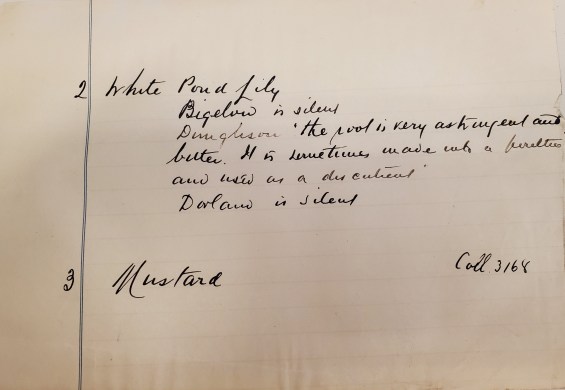 2 White Pond Lily
Bigelow is silent
Dunglison "the root is very astringent and
bitter. It is sometimes made into a poultice
and used as a discutient"
Dorland is silent
3 Mustard
Coll 3168